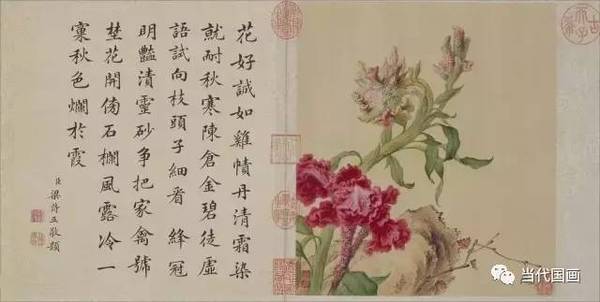 花好誠如雞幘丹清霜染
就耐秋寒陳倉金碧徒虛
語試向枝頭子細看絳冠
明豔漬靈砂争把家禽號
埜花開傍石欄風露冷一
窠秋色爛於霞
臣梁詩正敬題
当代国画